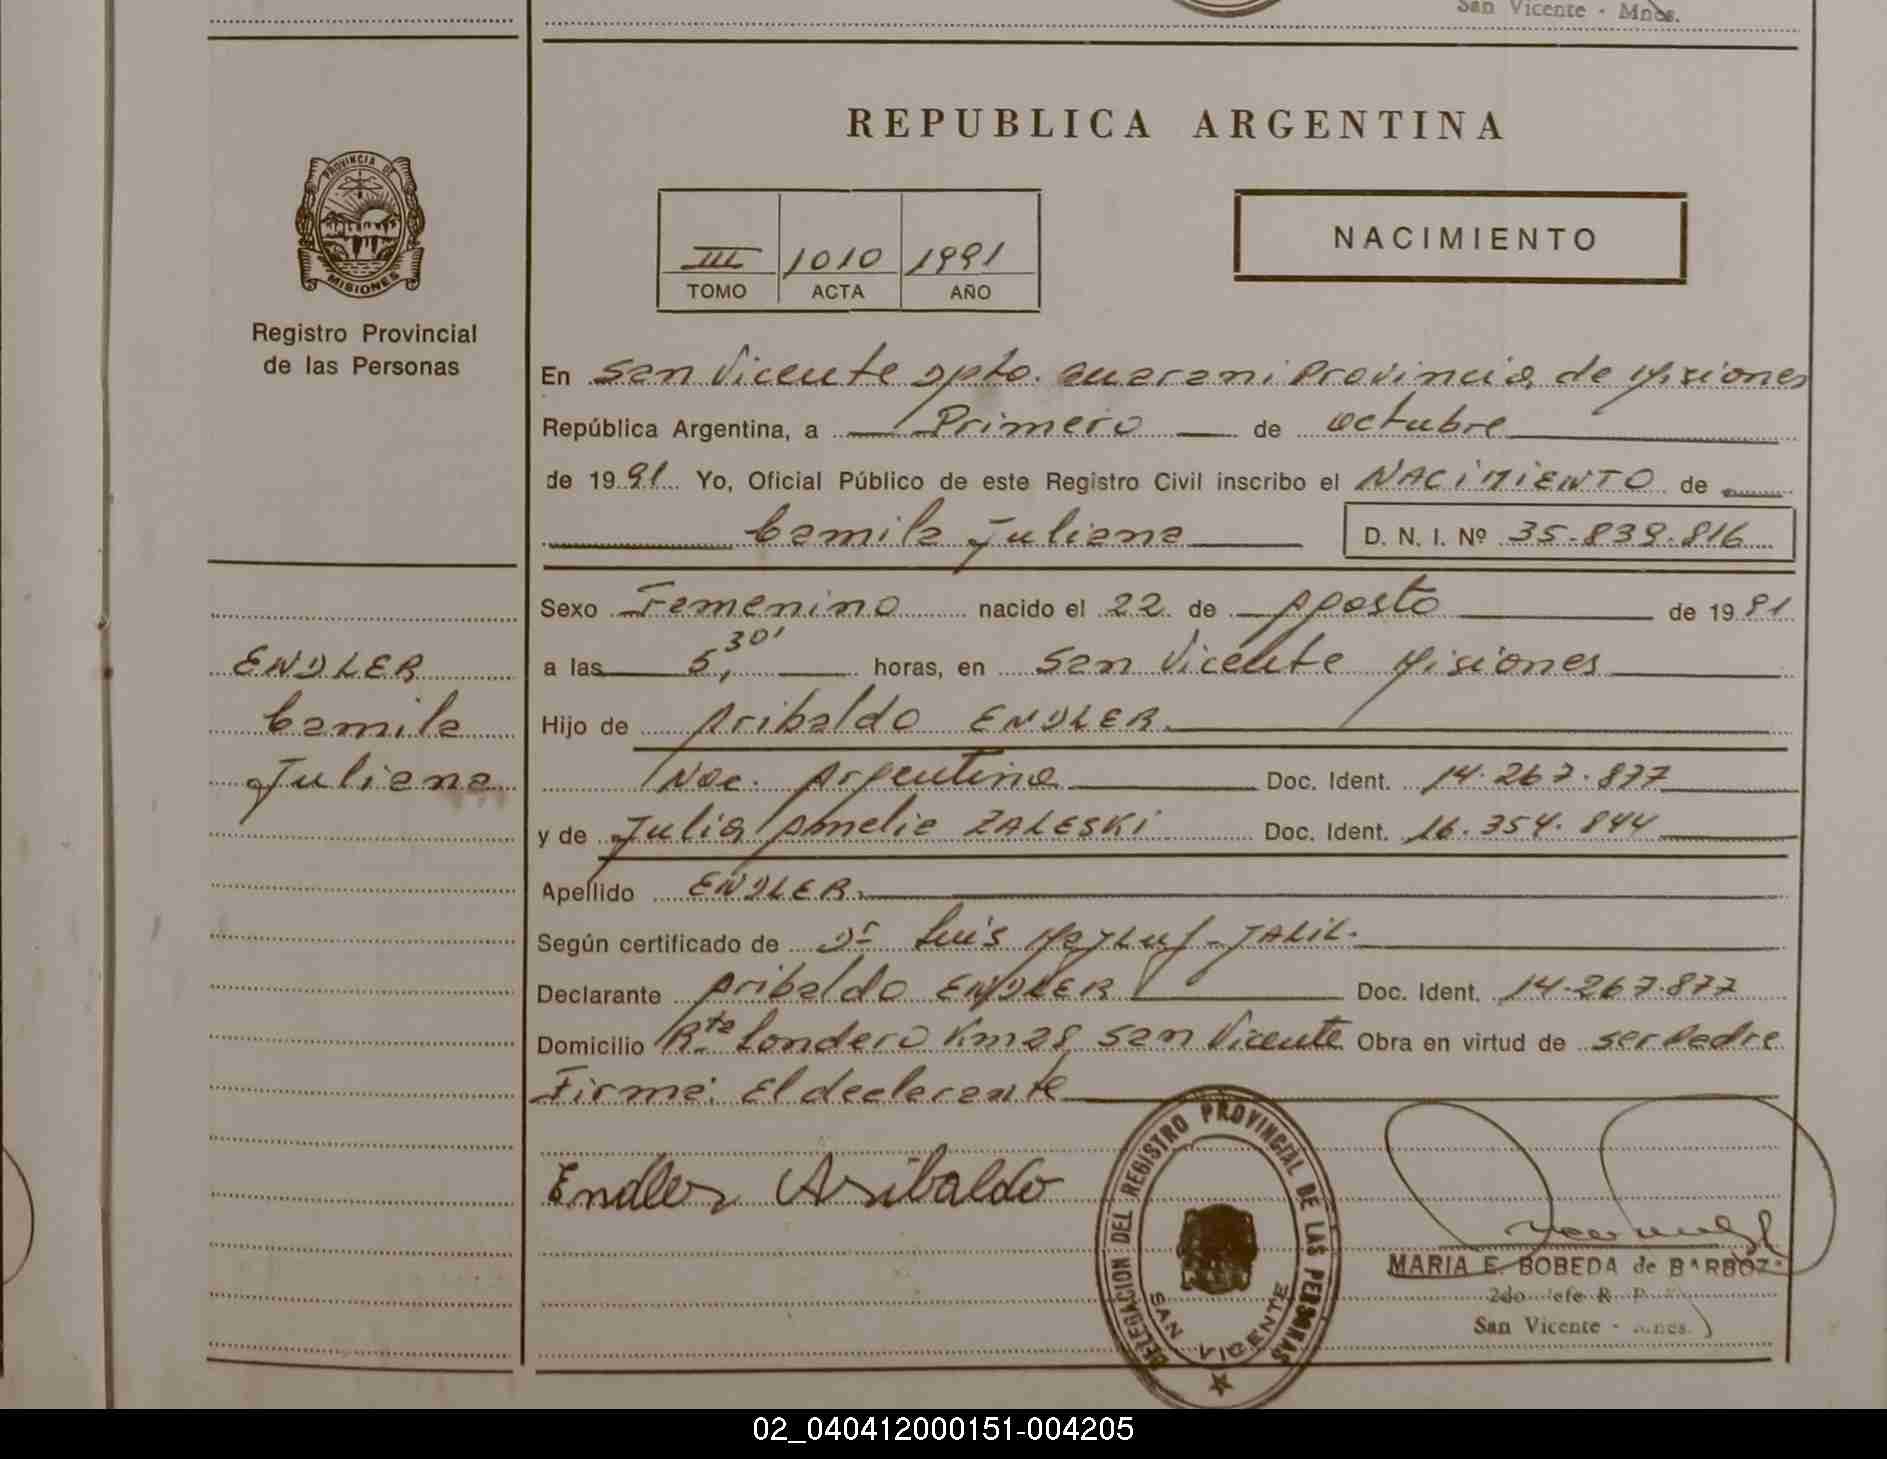 San Vicente - Mnes.
REPUBLICA ARGENTINA
PROVINCIA DE
MISIONES
Registro Provincial
de las Personas
III 1010 1991
TOMO ACTA AÑO
NACIMIENTO
En San Vicente Dpto. Guarani Provincia de Misiones
República Argentina, a Primero de octubre
de 1991 Yo, Oficial Público de este Registro Civil inscribo el NACIMIENTO de
Camila Juliana D. N. I. Nº 35.839.816
Sexo Femenino nacido el 22 de Agosto de 1991
a las 5,30' horas, en San Vicente Misiones
ENDLER
Camila
Juliana
Hijo de Aribaldo ENDLER
Nac. Argentina Doc. Ident. 14.267.877
y de Julia Amelia ZALESKI Doc. Ident. 16.354.844
Apellido ENDLER.
Según certificado de Dr Luis JALIL.
Declarante Aribaldo ENDLER Doc. Ident. 14.267.877
Domicilio Rta Londero Km 28 San Vicente Obra en virtud de ser Padre
Firma: El declarante
Endler Aribaldo
DELEGACION DEL REGISTRO PROVINCIAL DE LAS PERSONAS
SAN VICENTE
MARIA E. BOBEDA de BARBOZ
2do Jefe R. P.
San Vicente - Mnes.
02_040412000151-004205